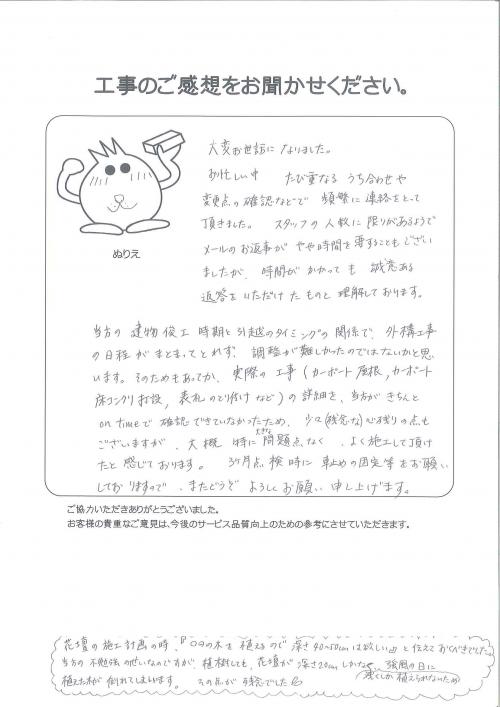 工事のご感想をお聞かせください。
ぬりえ
大変お世話になりました。
お忙しい中 たび重なる うち合わせや
変更点の確認などで 頻繁に連絡をとって
頂きました。 スタッフの人数に限りがあるようで
メールのお返事が やや時間を要することもござい
ましたが、時間が かかっても 誠意ある
返答をいただけたものと理解しております。
当方の 建物 竣工 時期と引越のタイミングの関係で、外構工事
の日程が まとまってとれず、調整が難しかったのではないかと思
います。そのためもあってか、実際の工事(カーポート屋根、カーポート
床コンクリ打設、表札のとり付けなど)の詳細を、当方がきちんと
on timeで確認できていなかったため、少々(残念な)心残りの点も
ございますが、大概 特に 大きな 問題点なく、よく施工して頂け
たと感じております。 3ヶ月点検時に 車止めの固定等をお願い
しておりますので、またどうぞ よろしくお願い 申し上げます。
ご協力いただきありがとうございました。
お客様の貴重なご意見は、今後のサービス品質向上のための参考にさせていただきます。
花壇の施工計画の時、『〇〇の木を植えるので深さ40~50cmは欲しい』と伝えておくべきでした。
当方の不勉強のせいなのですが、植樹しても、花壇が深さ20cmしかなく、強風の日に
浅くしか植えられないため
植えた木が倒れてしまいます。 その点が残念でした